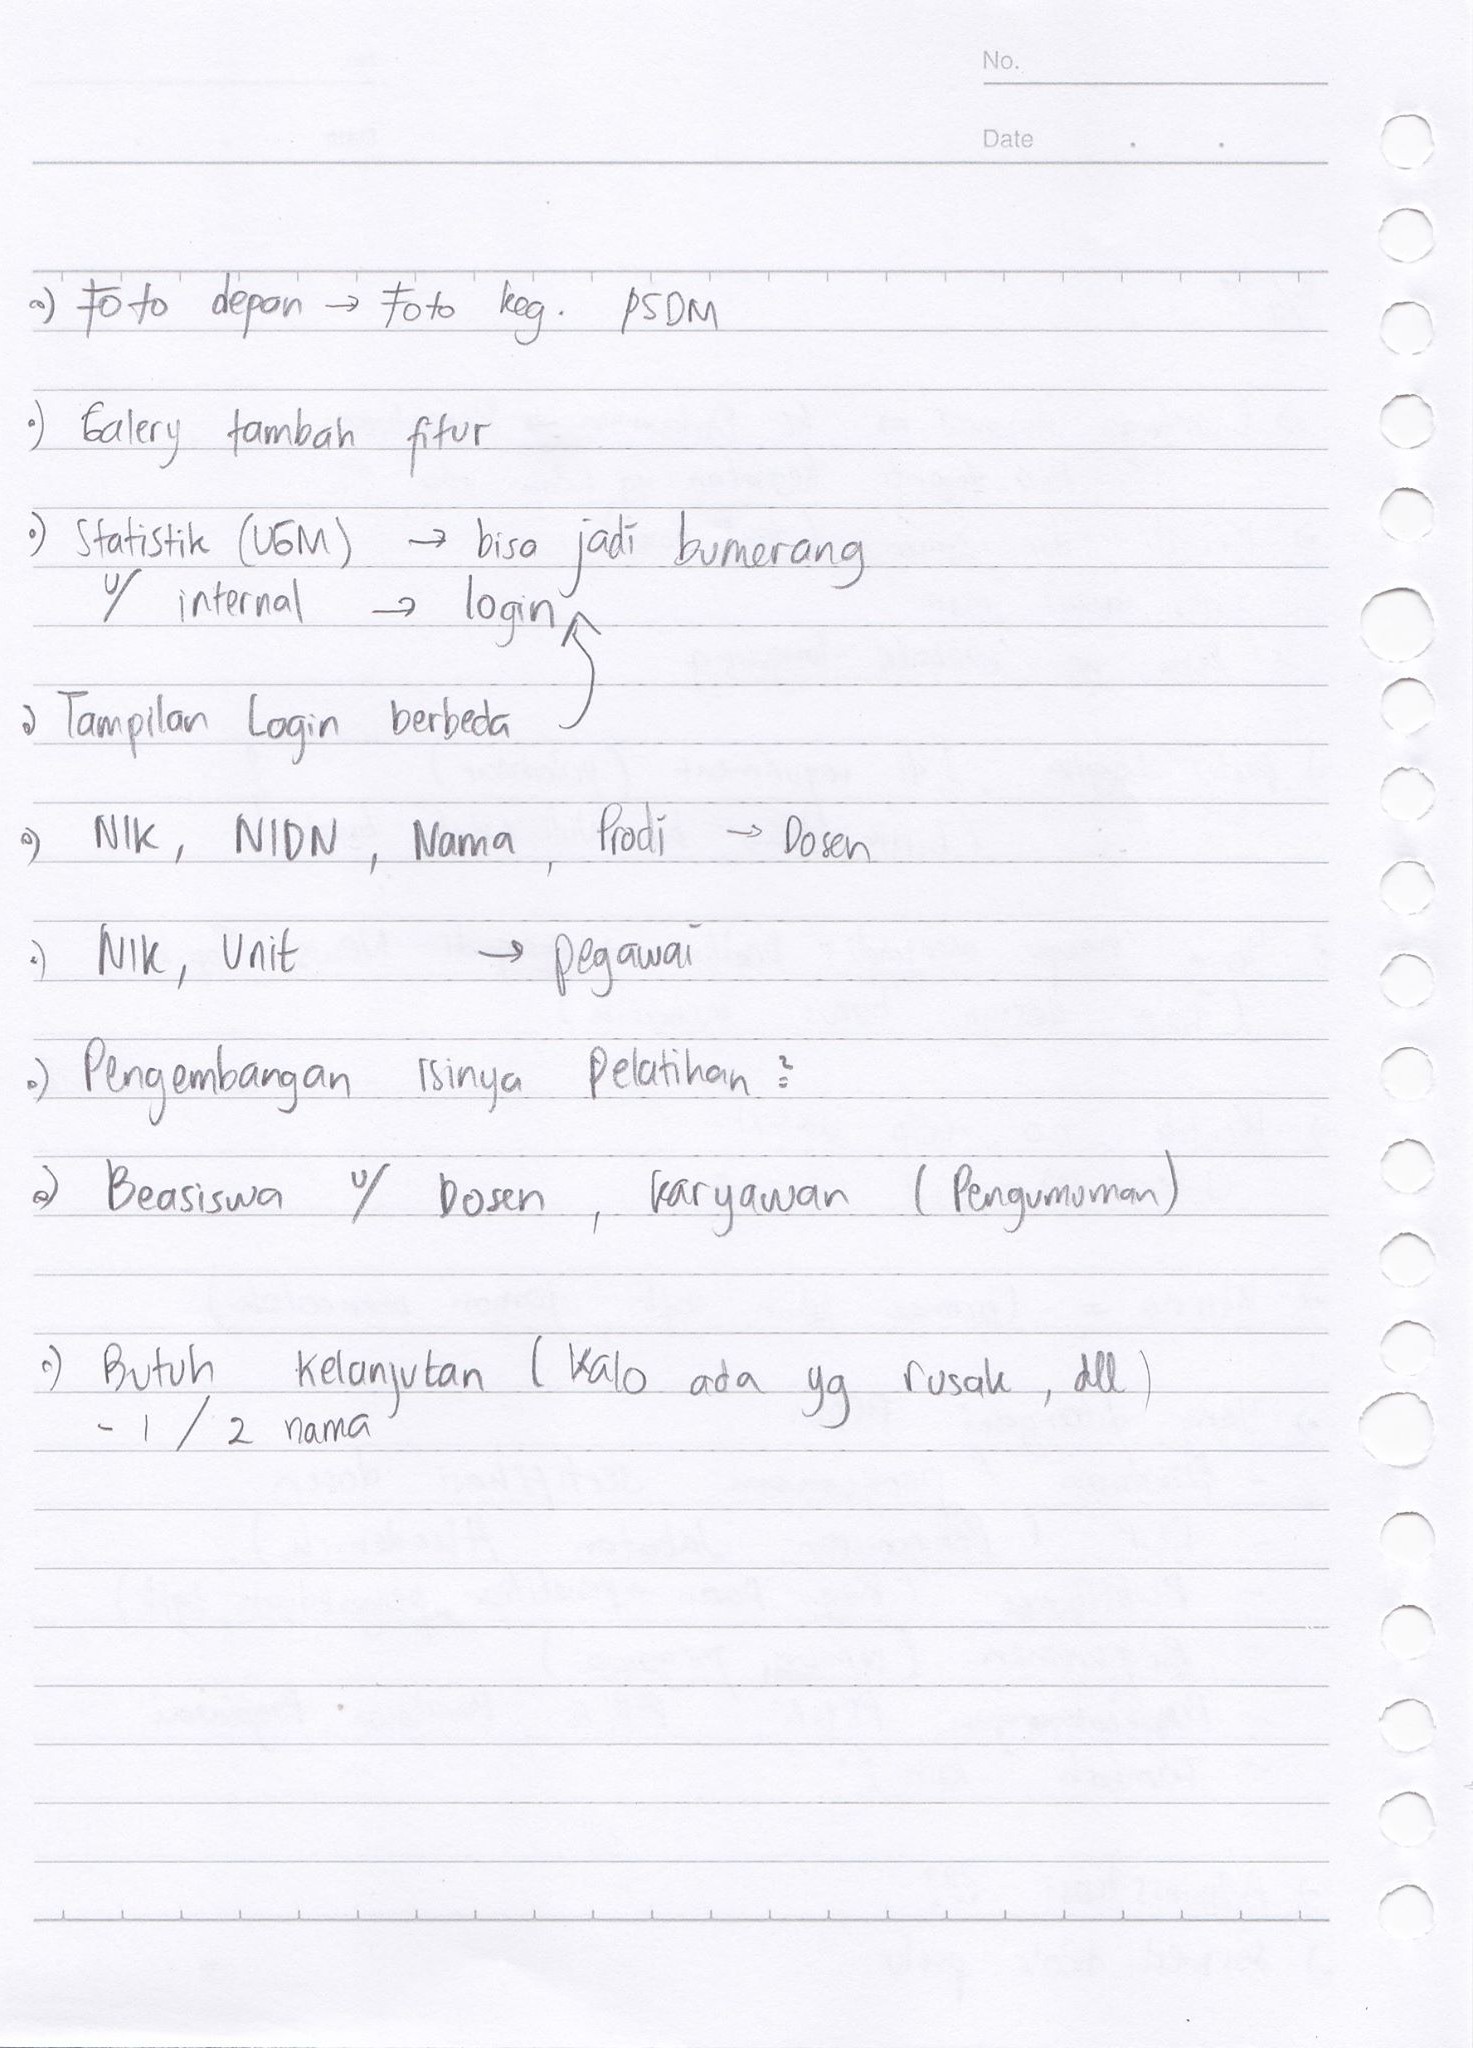 No.
Date . .
•) Foto depan → Foto keg. PSDM
•) Galery tambah fitur
•) Statistik (UGM) → bisa jadi bumerang
u/ internal → login
•) Tampilan Login berbeda
•) NIK, NIDN, Nama, Prodi → Dosen
•) NIK, Unit → pegawai
•) Pengembangan isinya Pelatihan ?
•) Beasiswa u/ Dosen, karyawan (Pengumuman)
•) Butuh kelanjutan (Kalo ada yg rusak, dll)
- 1 / 2 nama